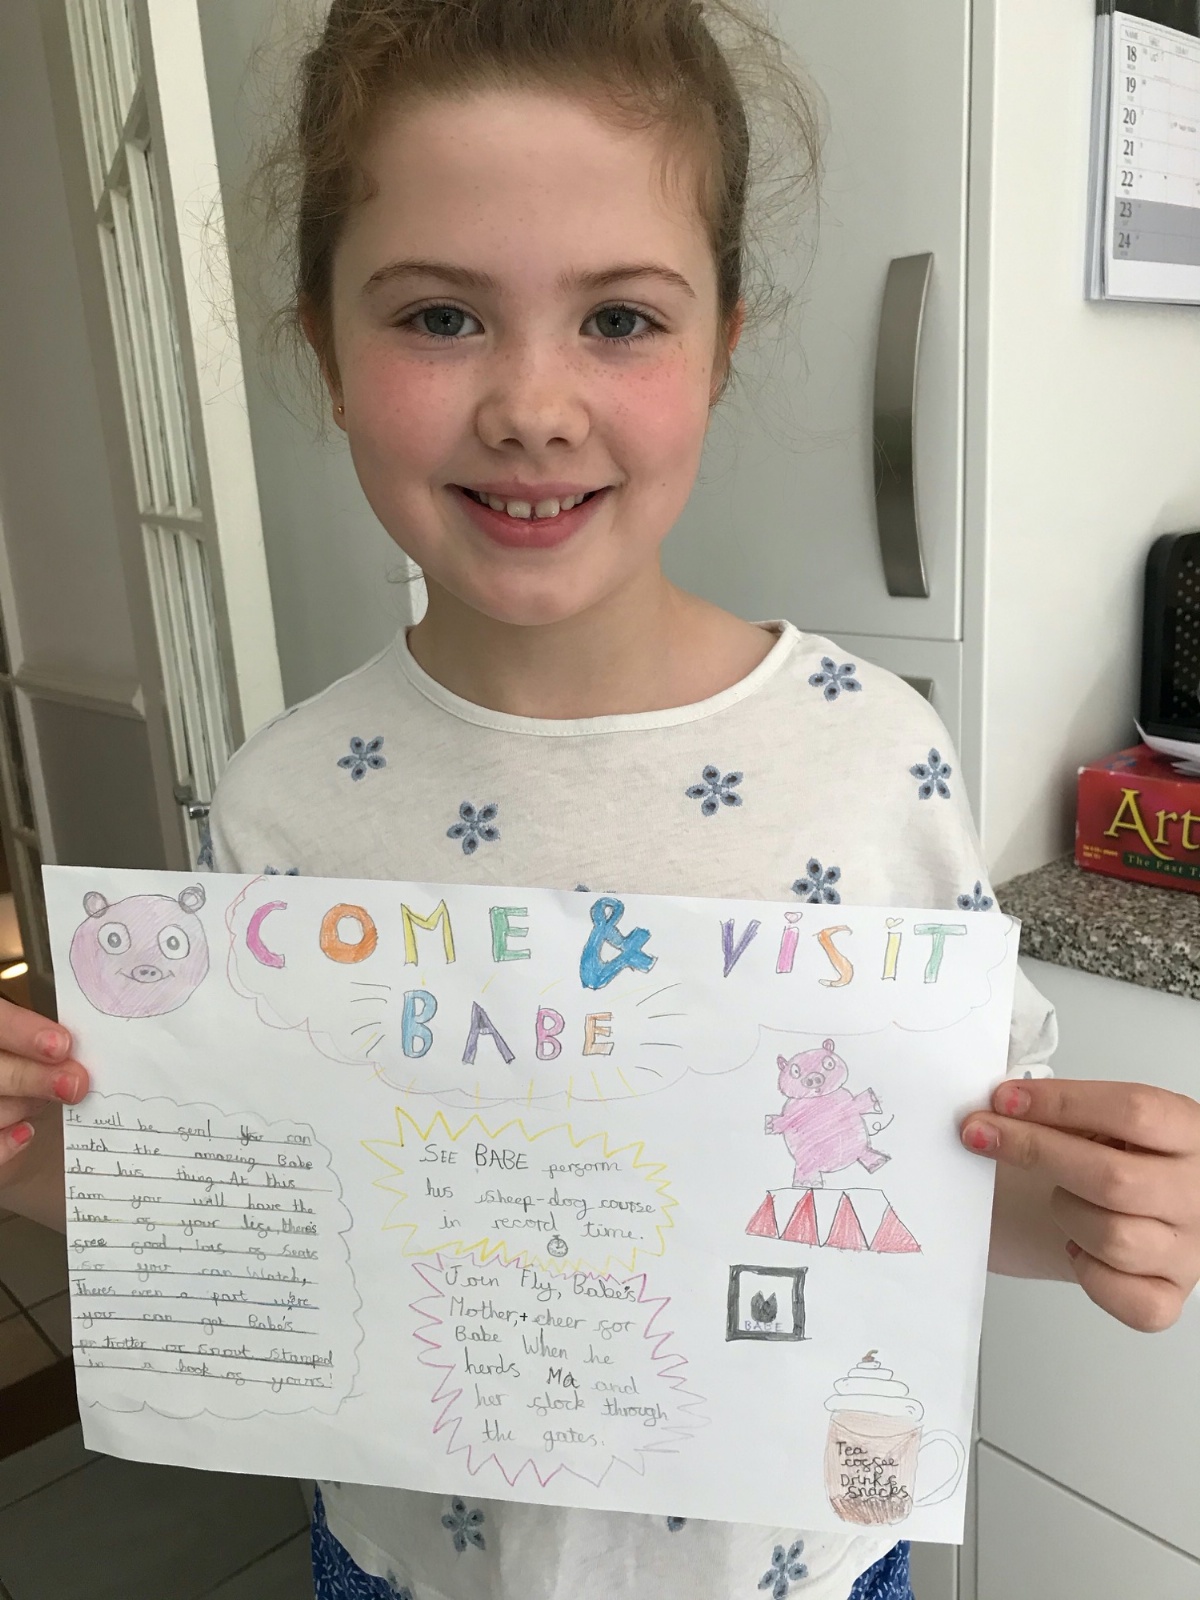 COME & VISIT
BABE
It will be fun! You can
watch the amazing Babe
do his thing. At this
Farm you will have the
time of your life, there's
free food, lots of seats
so you can Watch,
Theres even a part were
you can get Babe's
trotter or snout stamped
in a book of yours!
SEE BABE perform
his sheep-dog course
in record time.
Join Fly, Babe's
Mother, + cheer for
Babe When he
herds Ma and
her flock through
the gates.
BABE
Tea
coffee
Drinks
snacks
18
19
20
21
22
23
24
Art
The Fast T